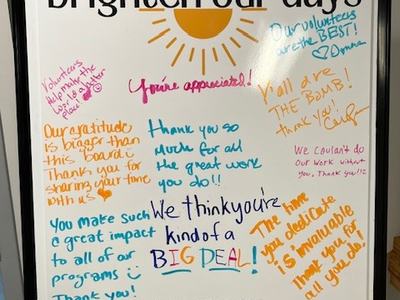 brighten our days
Our volunteers
are the BEST!
♡ Donna
Volunteers
Help make the
World a better
place!
You're appreciated!
Y'all are
THE BOMB!
thank you!
Our gratitude
is bigger than
this board!
Thank you for
sharing your time
with us
thank you so
Much for all
the great work
you do!!
We Couldn't do
Our Work without
you. Thank you!!!
You make such
a great impact
to all of our
programs
Thank you!
We think you're
kind of a
BIG DEAL!
The time
you dedicate
is invaluable
Thank you for
all you do.